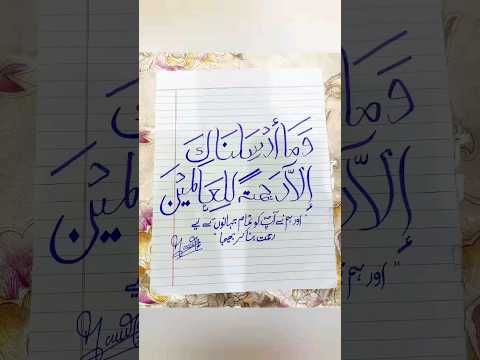 وَمَا أَرْسَلْنَاكَ
إِلَّا رَحْمَةً لِّلْعَالَمِيْنَ
"اور ہم نے آپ کو تمام جہانوں کے لیے
رحمت بنا کر بھیجا"